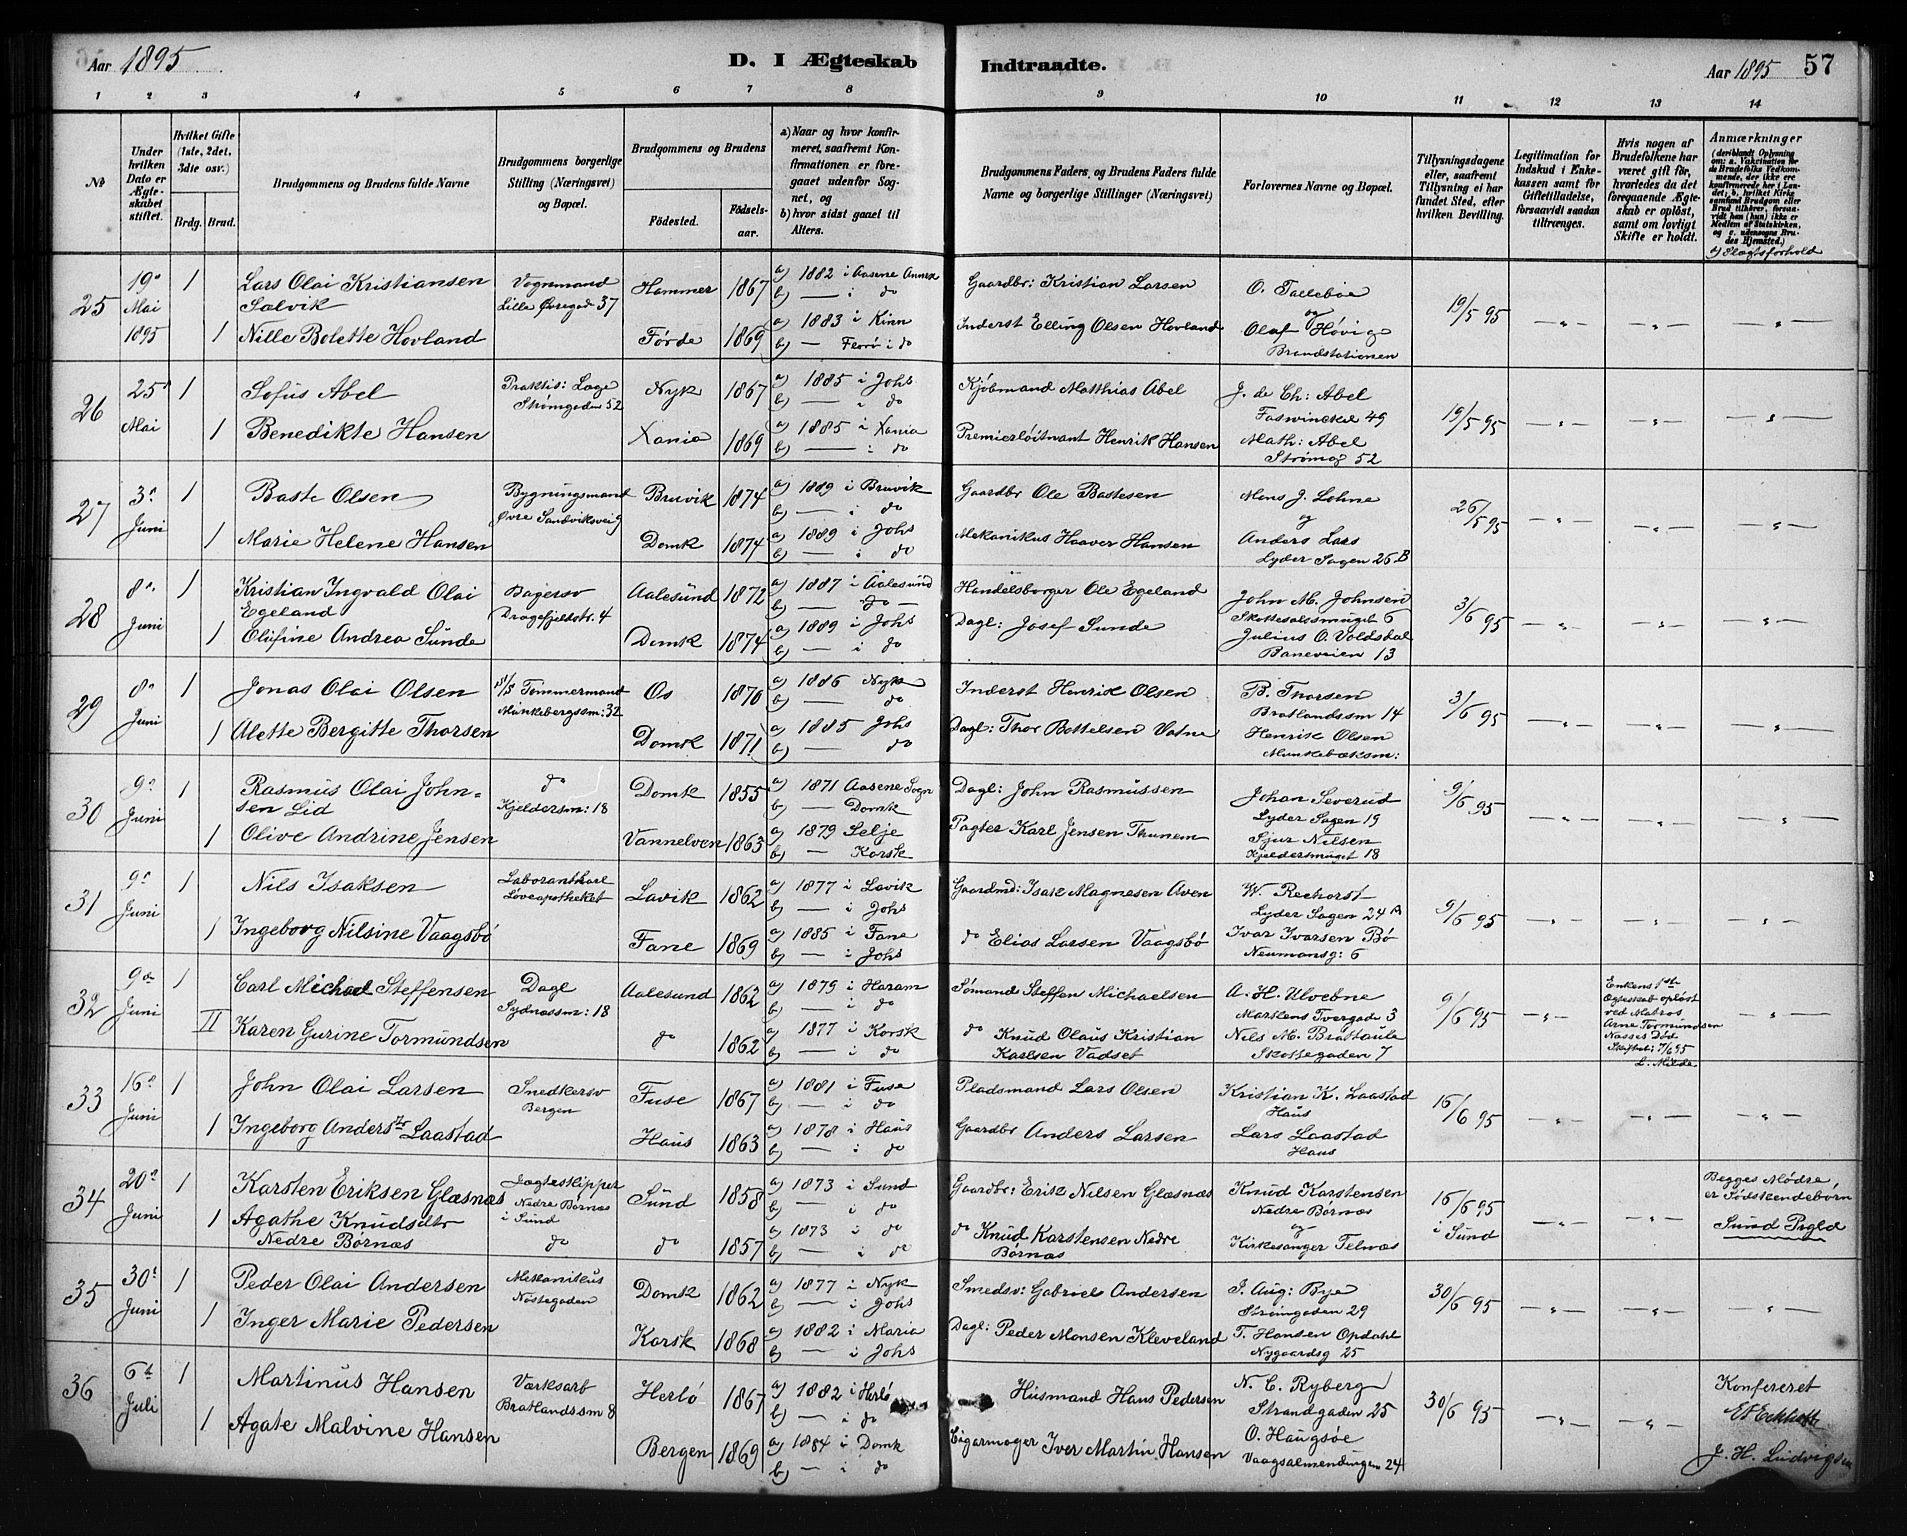 Aar 1895
D. I Ægteskab Indtraadte.
Aar 1895 57
1 2 3 4 5 6 7 8 9 10 11 12 13 14
No
Under hvilken Dato er Ægteskabet stiftet.
Hvilket Gifte (1ste, 2det, 3die osv.)
Brdg. Brud.
Brudgommens og Brudens fulde Navne
Brudgommens borgerlige Stilling (Næringsvei) og Bopæl.
Brudgommens og Brudens
Fødested. Fødselsaar.
a) Naar og hvor konfirmeret, saafremt Konfirmationen er foregaaet udenfor Sognet, og
b) hvor sidst gaaet til Alters.
Brudgommens Faders og Brudens Faders fulde Navne og borgerlige Stillinger (Næringsvei)
Forlovernes Navne og Bopæl.
Tillysningsdagene eller, saafremt Tillysning ei har fundet Sted, efter hvilken Bevilling.
Legitimation for Indskud i Enkekassen samt for Giftetilladelse, forsaavidt saadan tiltrænges.
Hvis nogen af Brudefolkene har været gift før, hvorledes da det foregaaende Ægteskab er opløst, samt om lovligt Skifte er holdt.
Anmærkninger
(deriblandt Oplysning om: a. Vakcination for de Brudefolks Vedkommende, der ikke ere konfirmerede her i Landet; b. hvilket Kirkesamfund Brudgom eller Brud tilhører, forsaavidt han (hun) ikke er Medlem af Statskirken, og c. udensogns Brudes Hjemsted.)
d) Slægtsforhold
25 19de Mai 1895 1 Lars Olai Kristiansen Salvik Vognmand Lille Øvregade 37 Hammer 1867 a) 1882 i Aasene Annex b) — i do Gaardbr: Kristian Larsen O. Tallebøe og 19/5 95 — " — — " — — " —
1 Nille Bolette Hovland Førde 1869 a) 1883 i Kinn b) — Florø i do Inderst Elling Olsen Hovland Olaf Høvig Brandstationen
26 25de Mai 1 Sofus Abel Praktis: Læge Strømgaden 52 Nyk 1867 a) 1885 i Johs b) — i do Kjøbmand Matthias Abel J. de Ch: Abel 49 19/5 95 — " — — " — — " —
1 Benedikte Hansen Xania 1869 a) 1885 i Xania b) — i do Premierløitnant Henrik Hansen Math: Abel Strømg 52
27 3de Juni 1 Baste Olsen Bygningsmand Øvre Sandviksvei 9 Bruvik 1874 a) 1889 i Bruvik b) — i do Gaardbr Ole Bastesen Mons J. Lohne og 26/5 95 — " — — " — — " —
1 Marie Helene Hansen Domk 1874 a) 1889 i Johs b) — i do Mekanikus Haaver Hansen Anders Lars Lyder Sagen 26 B
28 8de Juni 1 Kristian Ingvald Olai Egeland Bagersv Dragefjeldstr. 4 Aalesund 1872 a) 1887 i Aalesund b) — do — Handelsborger Ole Egeland John M. Johnsen Skottesalssmuget 6 3/6 95 — " — — " — — " —
1 Olufine Andrea Sunde Domk 1874 a) 1889 i Johs b) — i do Dagl: Josef Sunde Julius O. Voldsdal Baneveien 13
29 8de Juni 1 Jonas Olai Olsen Tømmermand Munkebergssm: 32 Os 1870 a) 1886 Nyk b) — do Inderst Henrik Olsen B. Thorsen Bratlandssm 14 3/6 95 — " — — " — — " —
1 Alette Bergitte Thorsen Domk 1871 a) 1885 Johs b) — do Dagl: Thor Bottelsen Vatne Henrik Olsen Munkebæksm:
30 9de Juni 1 Rasmus Olai Johnsen Lid do Kjeldersm: 18 Domk 1855 a) 1871 Aasene Sogn b) — Domk Dagl: John Rasmussen Johan Severud Lyder Sagen 19 9/6 95 — " — — " — — " —
1 Olive Andrine Jensen Vannelven 1863 a) 1879 Selje b) — Korsk Pagter Karl Jensen Thunem Sjur Nilsen Kjeldersmuget 18
31 9de Juni 1 Nils Isaksen Laborantkarl Løveapotheket Lavik 1862 a) 1877 i Lavik b) — i Johs Gaardmd: Isak Magnesen Aven W. Rechorst Lyder Sagen 24 A 9/6 95 — " — — " — — " —
1 Ingeborg Nilsine Vaagsbø Fane 1869 a) 1885 i Fane b) — i Johs do Elias Larsen Vaagsbø Ivar Ivarsen Bø Neumansg: 6
32 9de Juni 1 Carl Michael Steffensen Dagl Sydnæssm: 18 Aalesund 1862 a) 1879 i Haram b) — i do Sømand Steffen Michaelsen A. H. Ulvebne Martens Tvergade 3 9/6 95 — " — Enkens 1ste Ægteskab opløst ved Matros Arne Tormundsen Nasses Død Skiftet: 7/6 95 L. Milde — " —
II Karen Gurine Tormundsen do 1862 a) 1877 i Korsk b) — i do do Knud Olaus Kristian Karlsen Vadset Nils M. Brattaule Skottegaden 7
33 16de Juni 1 John Olai Larsen Snedkersv Bergen Fuse 1867 a) 1881 i Fuse b) — i do Pladsmand Lars Olsen Kristian K. Laastad Haus 16/6 95 — " — — " — — " —
1 Ingeborg Andersdtr Laastad Haus 1863 a) 1878 i Haus b) — i do Gaardbr Anders Larsen Lars Laastad Haus
34 20de Juni 1 Karsten Eriksen Glæsnæs Jagteskipper Nedre Børnæs i Sund Sund 1858 a) 1873 i Sund b) — i do Gaardbr: Erik Nilsen Glæsnæs Knud Karstensen Nedre Børnæs og 16/6 95 i Sund — " — — " — Begges Mødre er Sødskendebørn Sund Prgld
1 Agathe Knudsdtr Nedre Børnæs do do 1857 a) 1873 i do b) — i do do Knud Karstensen Nedre Børnæs Kirkesanger Telnæs
35 30te Juni 1 Peder Olai Andersen Mekanikus Nøstegaden Domk 1862 a) 1877 i Nyk b) — i Johs Smedsv: Gabriel Andersen J. Aug: Bye Strømgaden 29 30/6 95 — " — — " — — " —
1 Inger Marie Pedersen Korsk 1868 a) 1882 i Maria b) — i Johs Dagl: Peder Monsen Kleveland T. Hansen Opdahl Nygaardsg 25
36 6te Juli 1 Martinus Hansen Værksarb Bratlandssm 8 Herlø 1867 a) 1882 i Herlø b) — i do Husmand Hans Pedersen N. C. Ryberg Strandgaden 25 30/6 95 — " — — " — Konfereret
1 Agate Malvine Hansen Bergen 1869 a) 1884 i Domk b) — i do Cigarmager Iver Martin Hansen O. Haugsøe Vaagsalmendingen 24 J. H. Ludvigsen